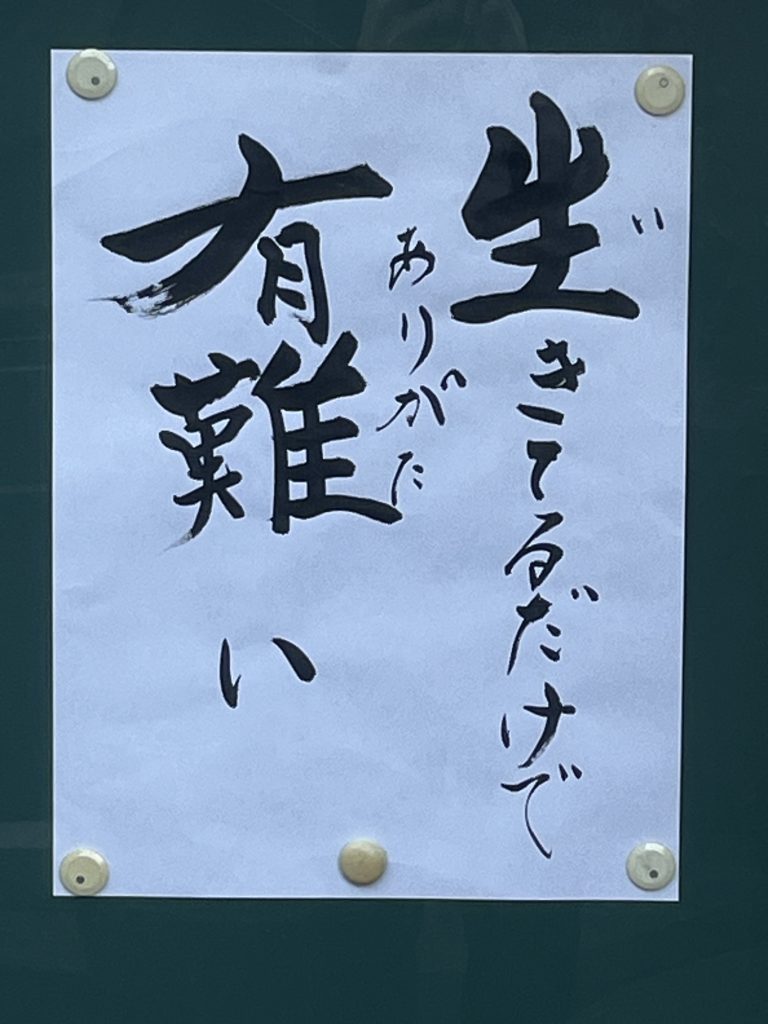 生きてるだけで
い
有難い
ありがた